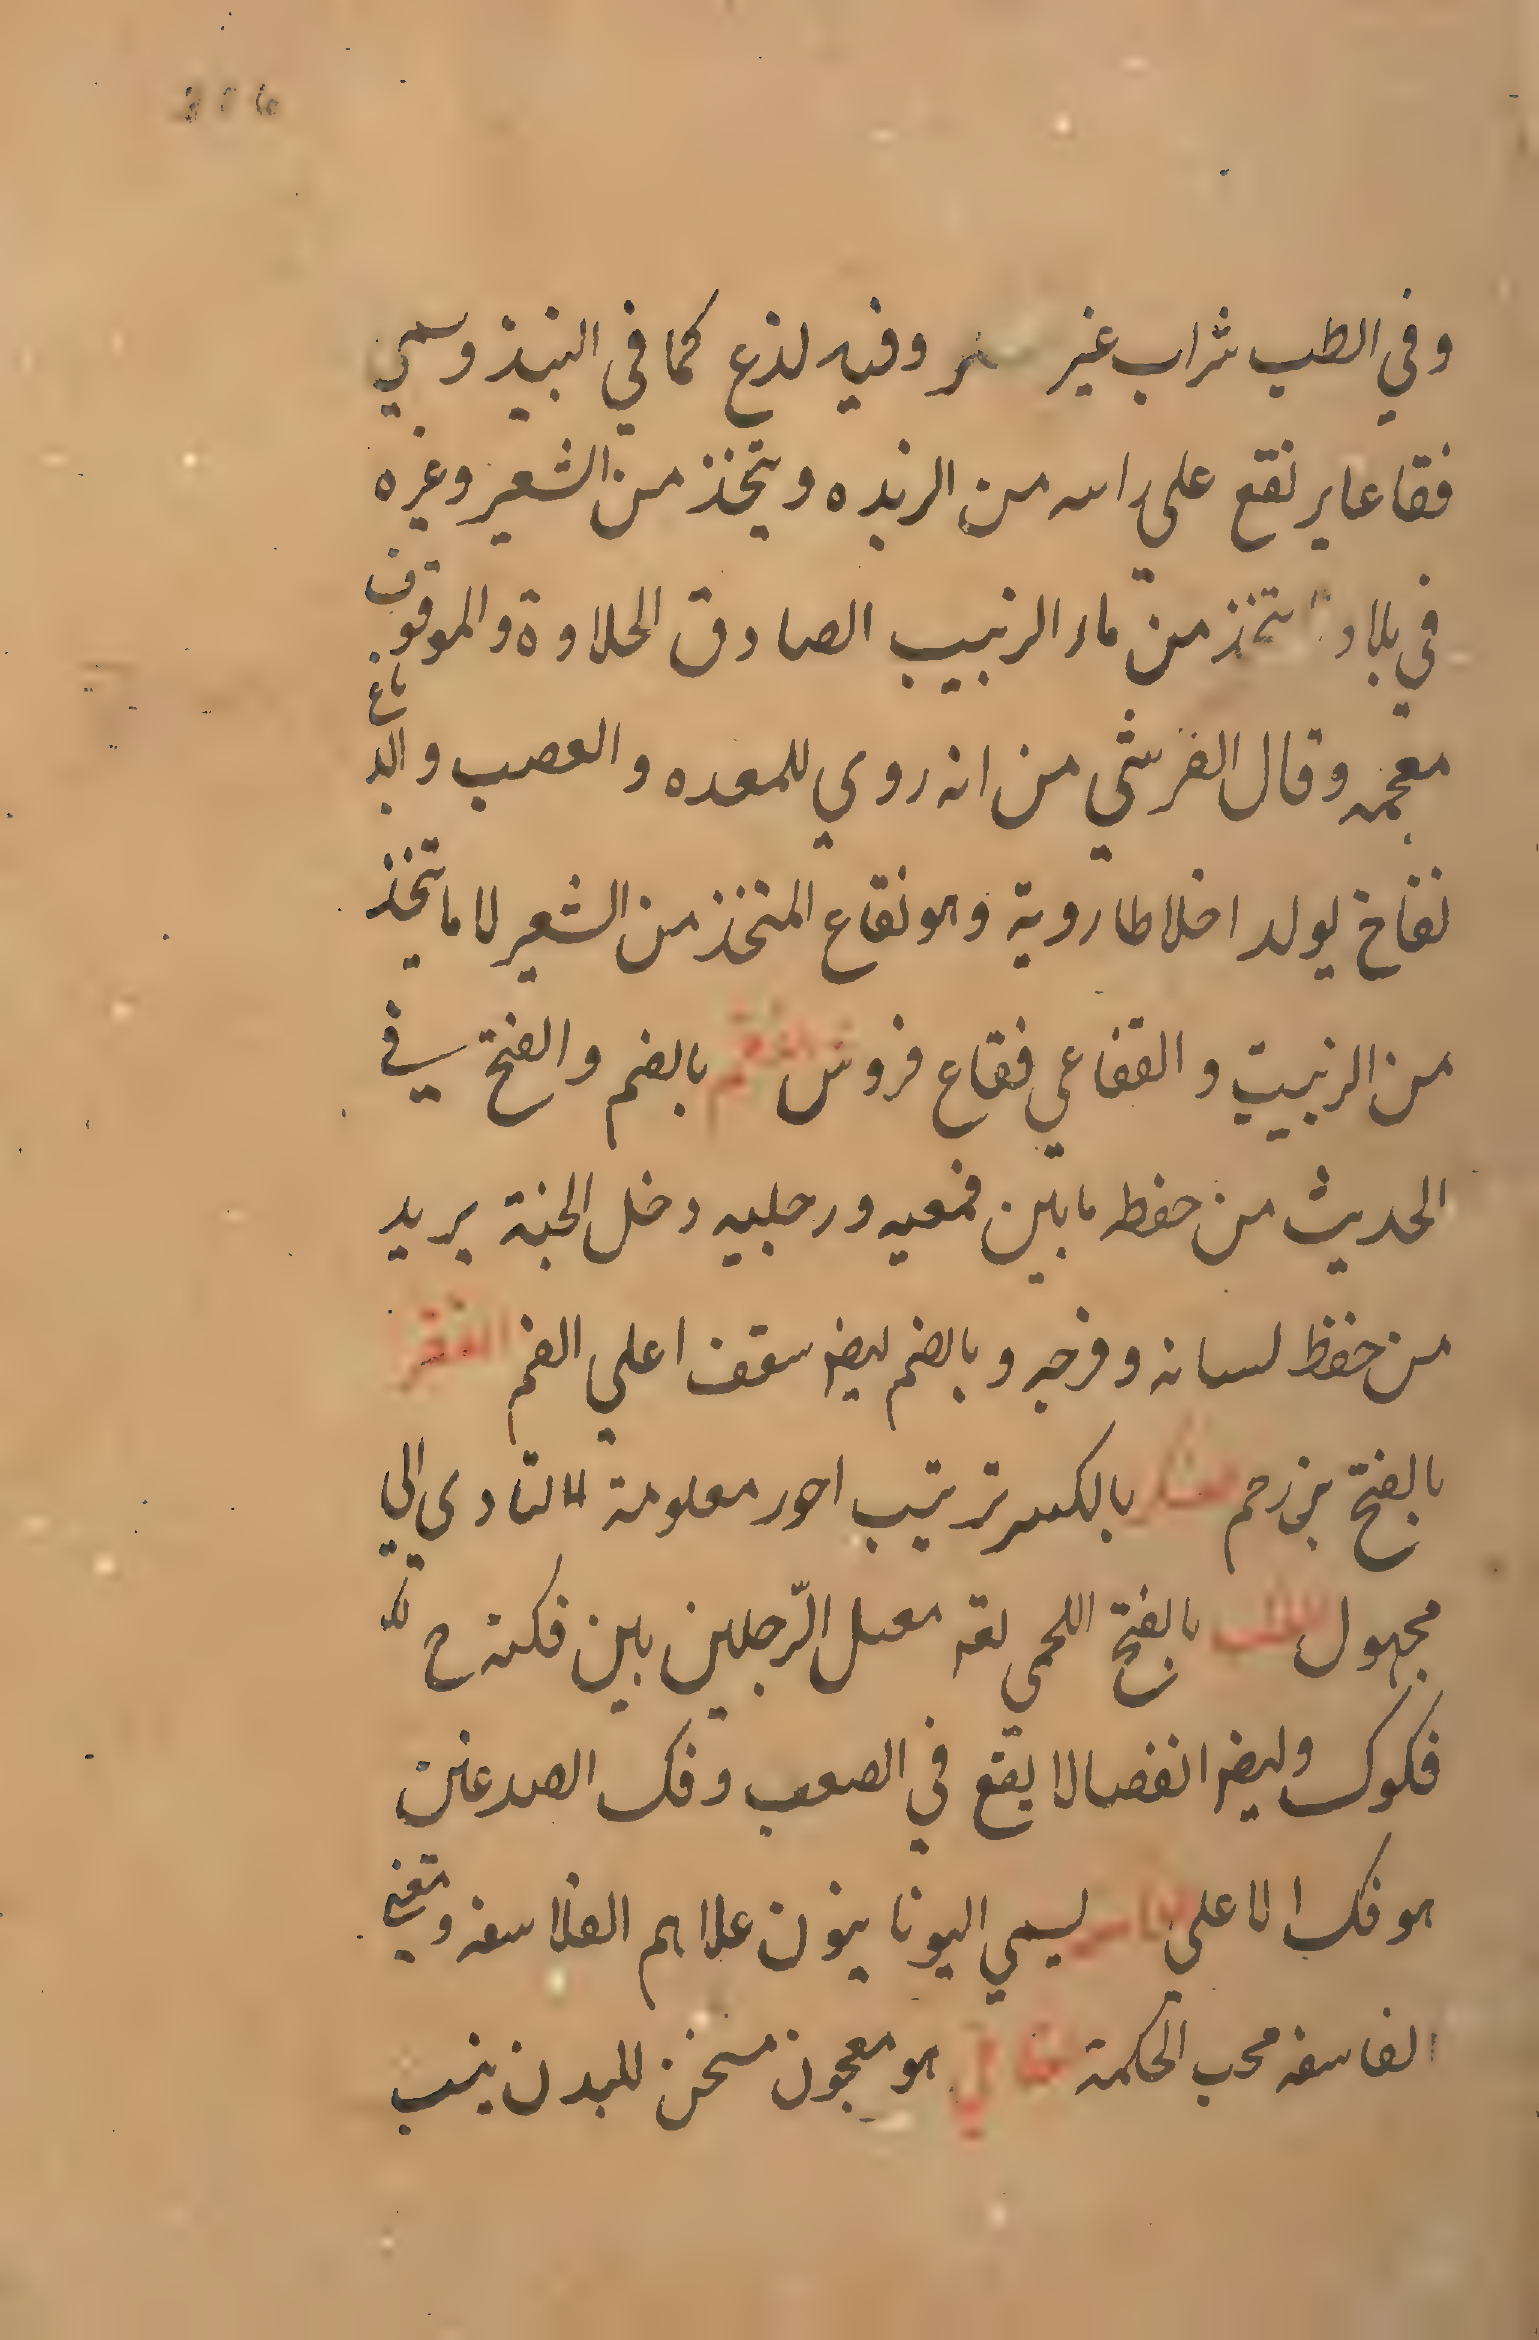 وفي الطب شراب غير وفيه لذع كما في النبيذ وسمي
فقاعا يرتفع علي راسه من الزبده ويتخذ من الشعير وغيره
في بلاد يتخذ من ماء الزبيب الصادق الحلاوة والموقوف
معجمه وقال القرشي من انه روي للمعده والعصب والدباغ
نفاخ يولد اخلاطا روية وهو نقاع المتخذ من الشعير لا ما يتخذ
من الزبيب و القفاعي فقاع فروش الفقم بالضم والفتح في
الحديث من حفظ ما بين فمعيه ورجليه دخل الجنة يريد
من حفظ لسانه وفرجه وبالضم ليضم سقف اعلي الفم الفقر
بالفتح بزرحم بالكسر ترتيب احور معلومة للتادي الي
مجهول بالفتح اللحي لغة معسل الرجلين بين فكنه ح
فكوك وليضم انفصالا يقع في الصعب وفك الصدعين
هو فك الاعلي ليسمي اليونانيون علاهم الفلاسفه ومعني
الفاسفه محب الحكمة هو معجون مسخن للبدن ينسب